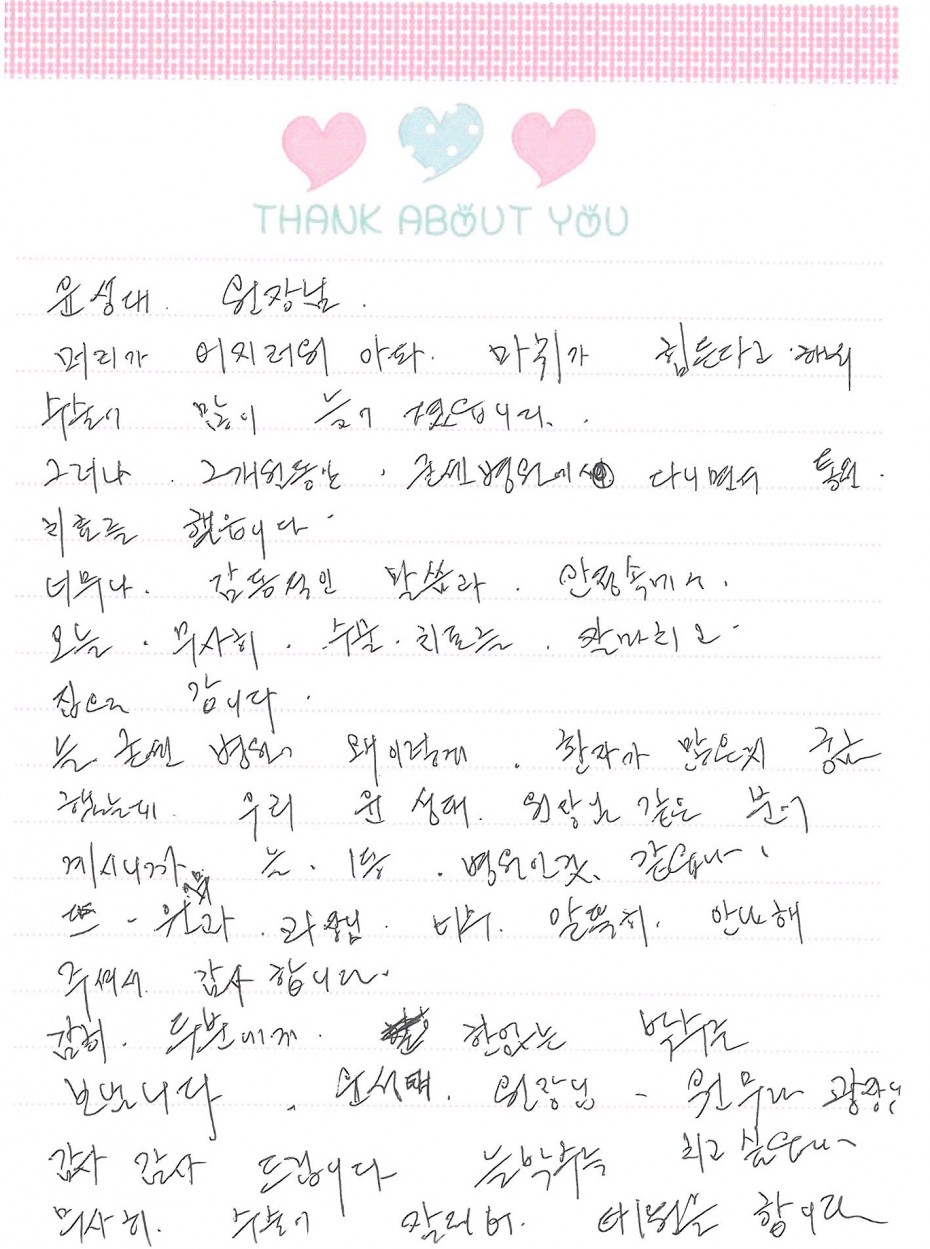 THANK ABOUT YOU
윤성대. 원장님.
머리가 어지러워 아파. 마취가 힘든다고 해외
수술이 많이 늦어 졌습니다.
그러나. 2개월동안. 굳센병원에서 다니면서 통원.
치료를 했읍니다.
너무나. 감동적인 말씀과. 안정속에서.
오늘. 무사히. 수술. 치료를. 잘마치고
집으로 갑니다.
굳센 병원이 왜이렇게. 환자가 많은지 궁금
했는데. 우리 윤 성대. 원장님 같은 분이
계시니까 1등. 병원인것 같습니다.
원과 과장님. 너무. 알뜩히. 안내해
주셔서. 감사 합니다.
감히. 두분에게. 한없는 박수를
보냅니다. 윤성대. 원장님 - 원무과 과장님
감사 감사 드립니다 치고 싶습니다
무사히. 수술이 잘되어. 퇴원을 합니다